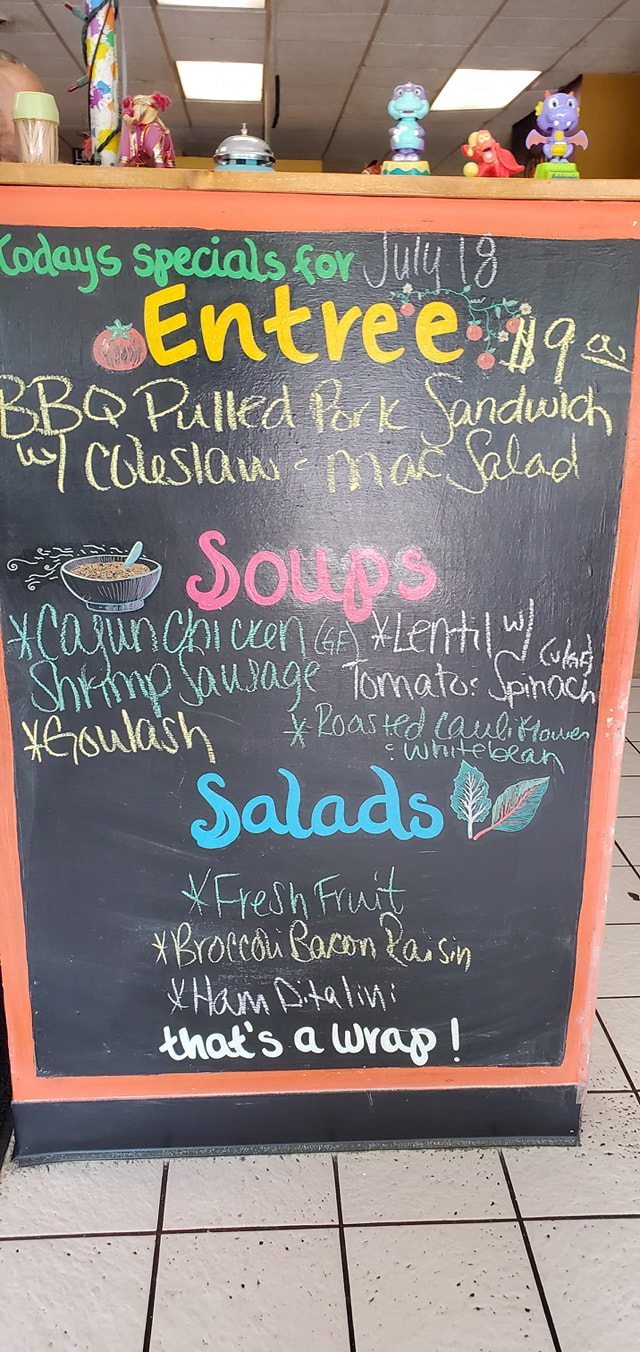 Todays specials for July 18
Entree $9.00
BBQ Pulled Pork Sandwich
w/ Coleslaw & Mac Salad
Soups
*Cajun Chicken (GF)
Shrimp Sausage
*Lentil w/
Tomato & Spinach (V/GF)
*Goulash
*Roasted Cauliflower
& white bean
Salads
*Fresh Fruit
*Broccoli Bacon Raisin
*Ham Ditalini
that's a wrap!